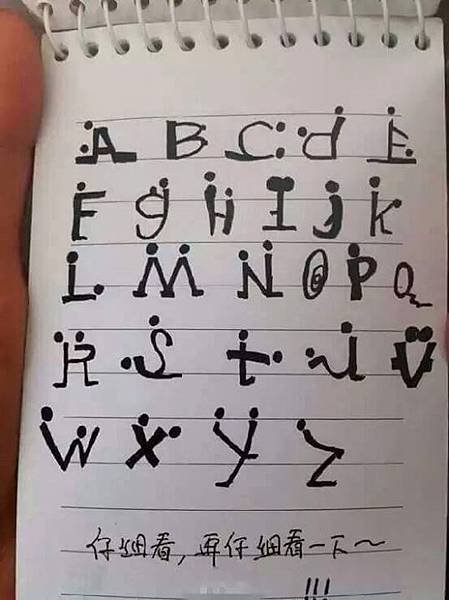 A B C d E
F g H I j K
L M N O P Q
R S t U V
W X Y Z
仔细看，再仔细看一下～
!!!